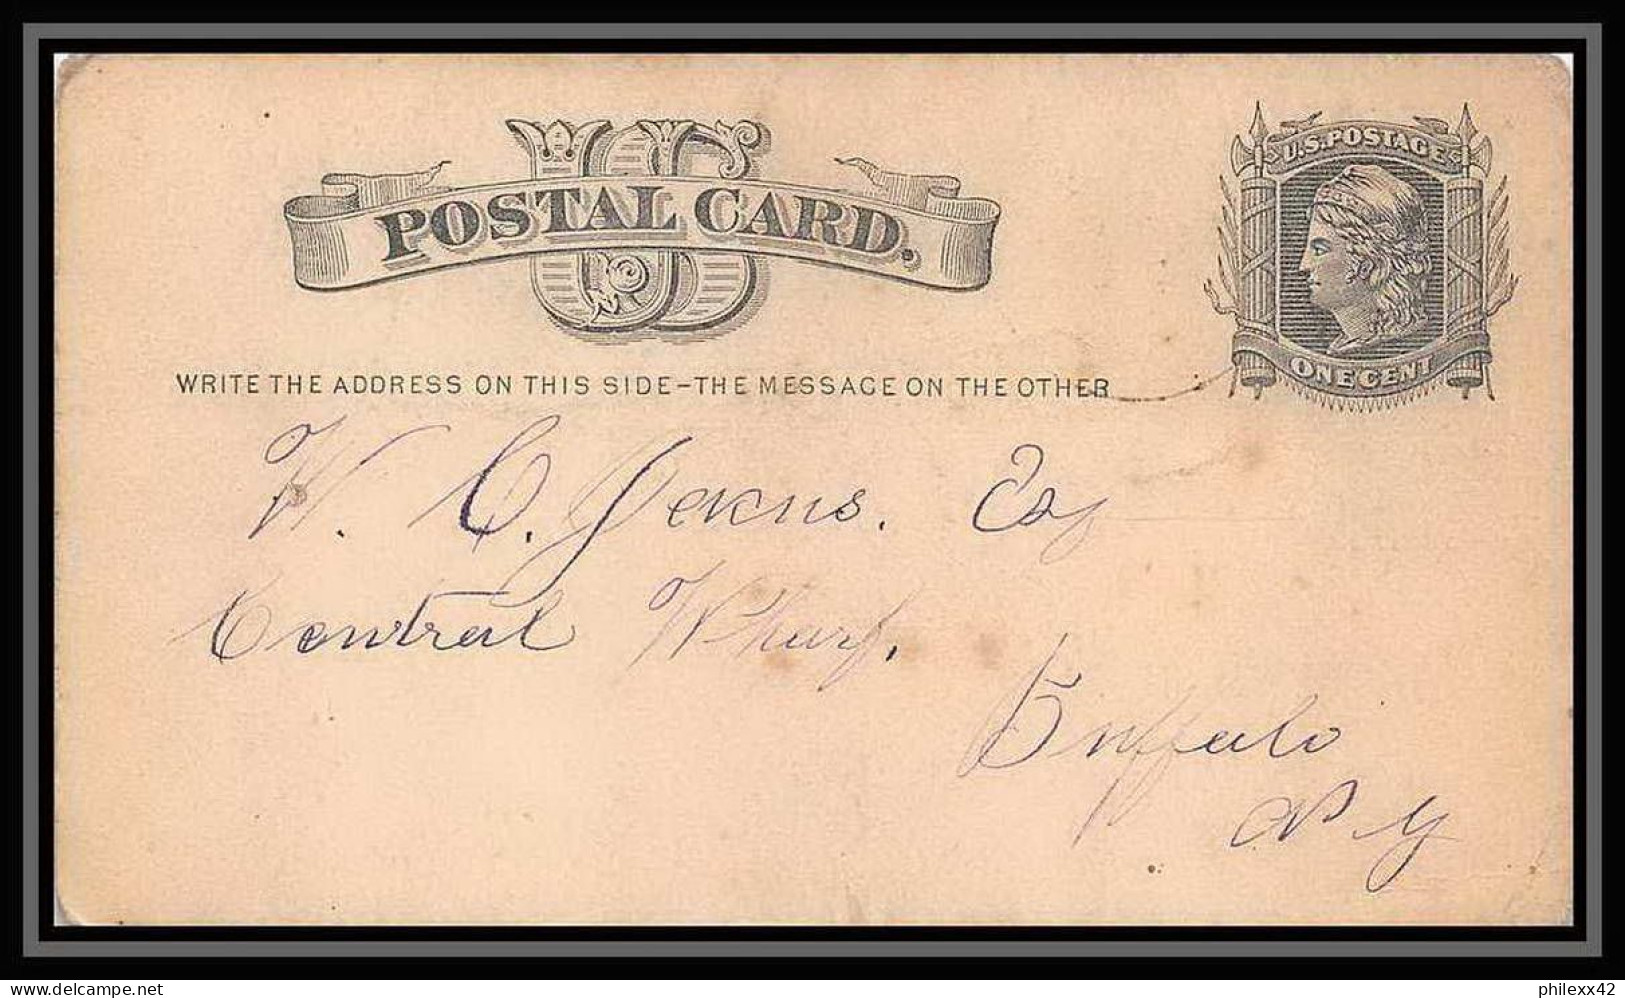 U.S. POSTAGE
US
POSTAL CARD.
ONE CENT
WRITE THE ADDRESS ON THIS SIDE-THE MESSAGE ON THE OTHER
W. C. Esq
Central Wharf.
Buffalo
N Y
www.delcampe.net
philexx42